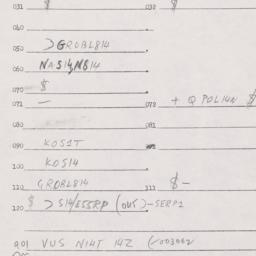 031 $ 032 $
040
050 >GROBL814
060 NASI4NB14
070 $
071 — 072 + Q POLI4N $
080 081
090 KOSIT
100 KOSI4
110 GROBL814 111 $ -
120 $ > SI4/ESSRP (OUS)-SERP2
901 VUS NIHT 14Z